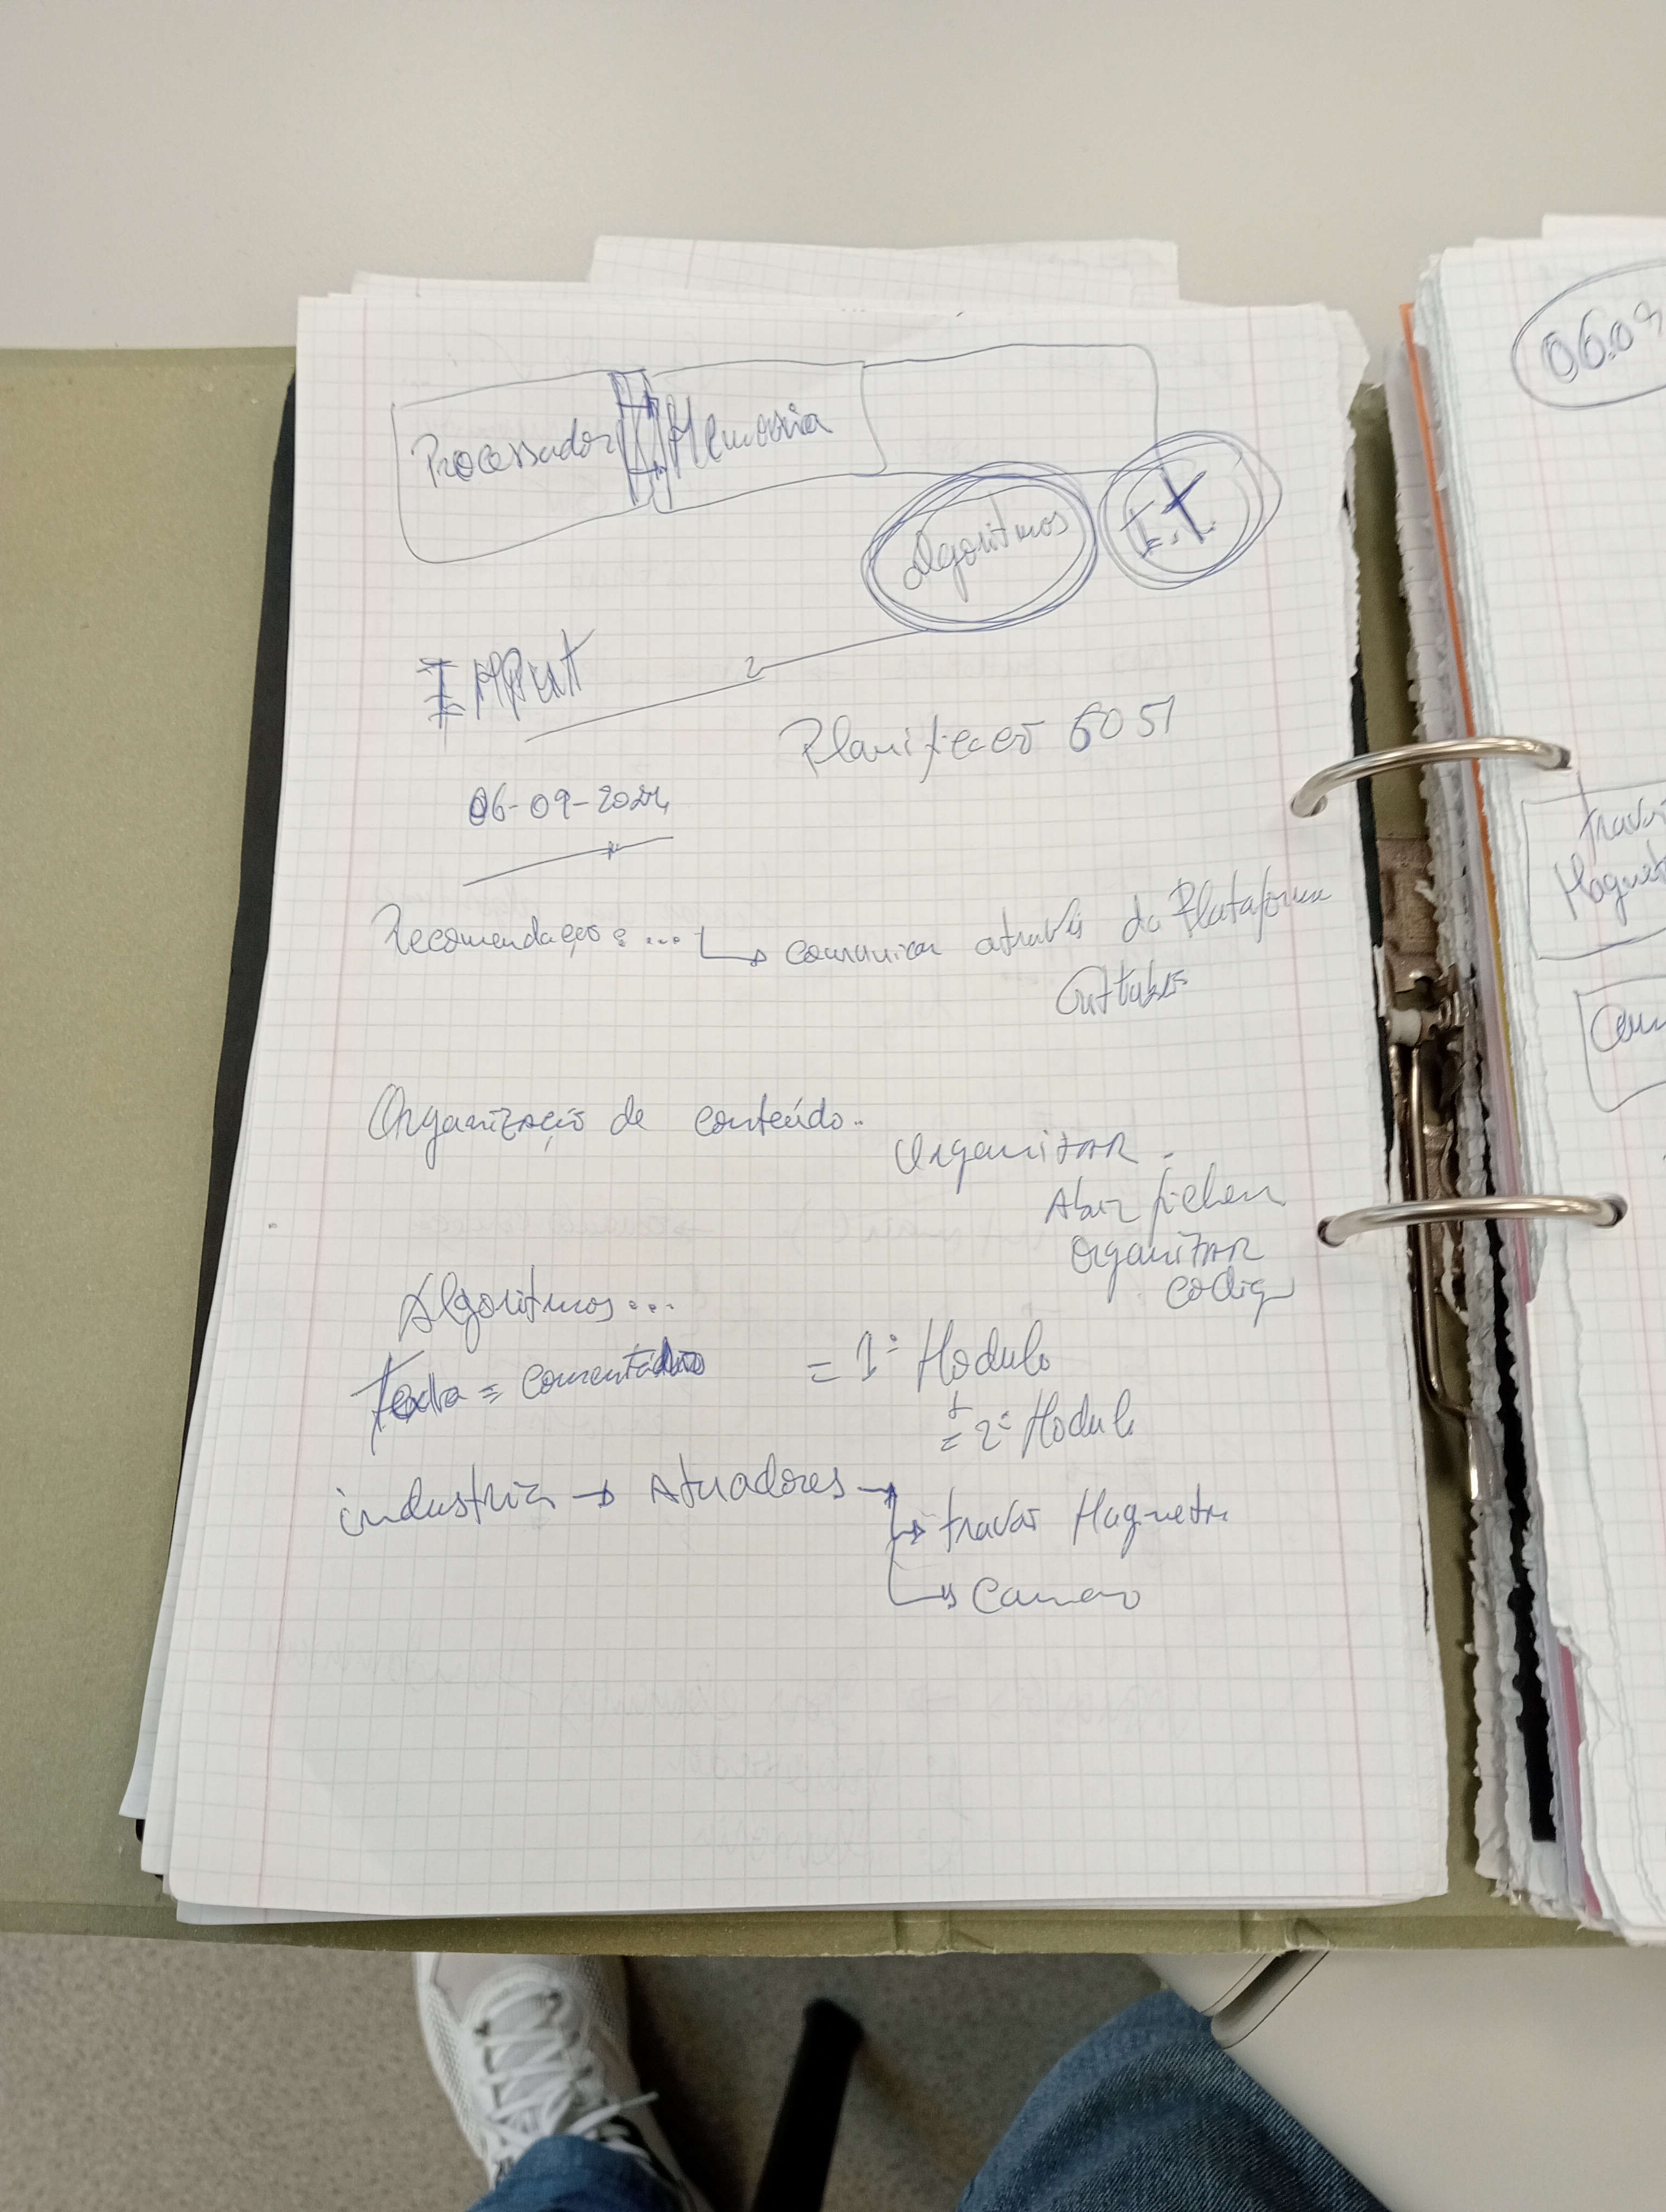 Processador Memoria
algoritmos
2
Planificação 6051
06-09-2024
Recomendações ... comunicar através da Plataforma
Organização de conteúdo..
Organizar.
Abrir ficheir
Organizar
codig
Algoritmos...
= comentádo = 1º Modulo
= 2º Modulo
industria → Atuadores
travas Magnetr
06.09
travas
Magnet